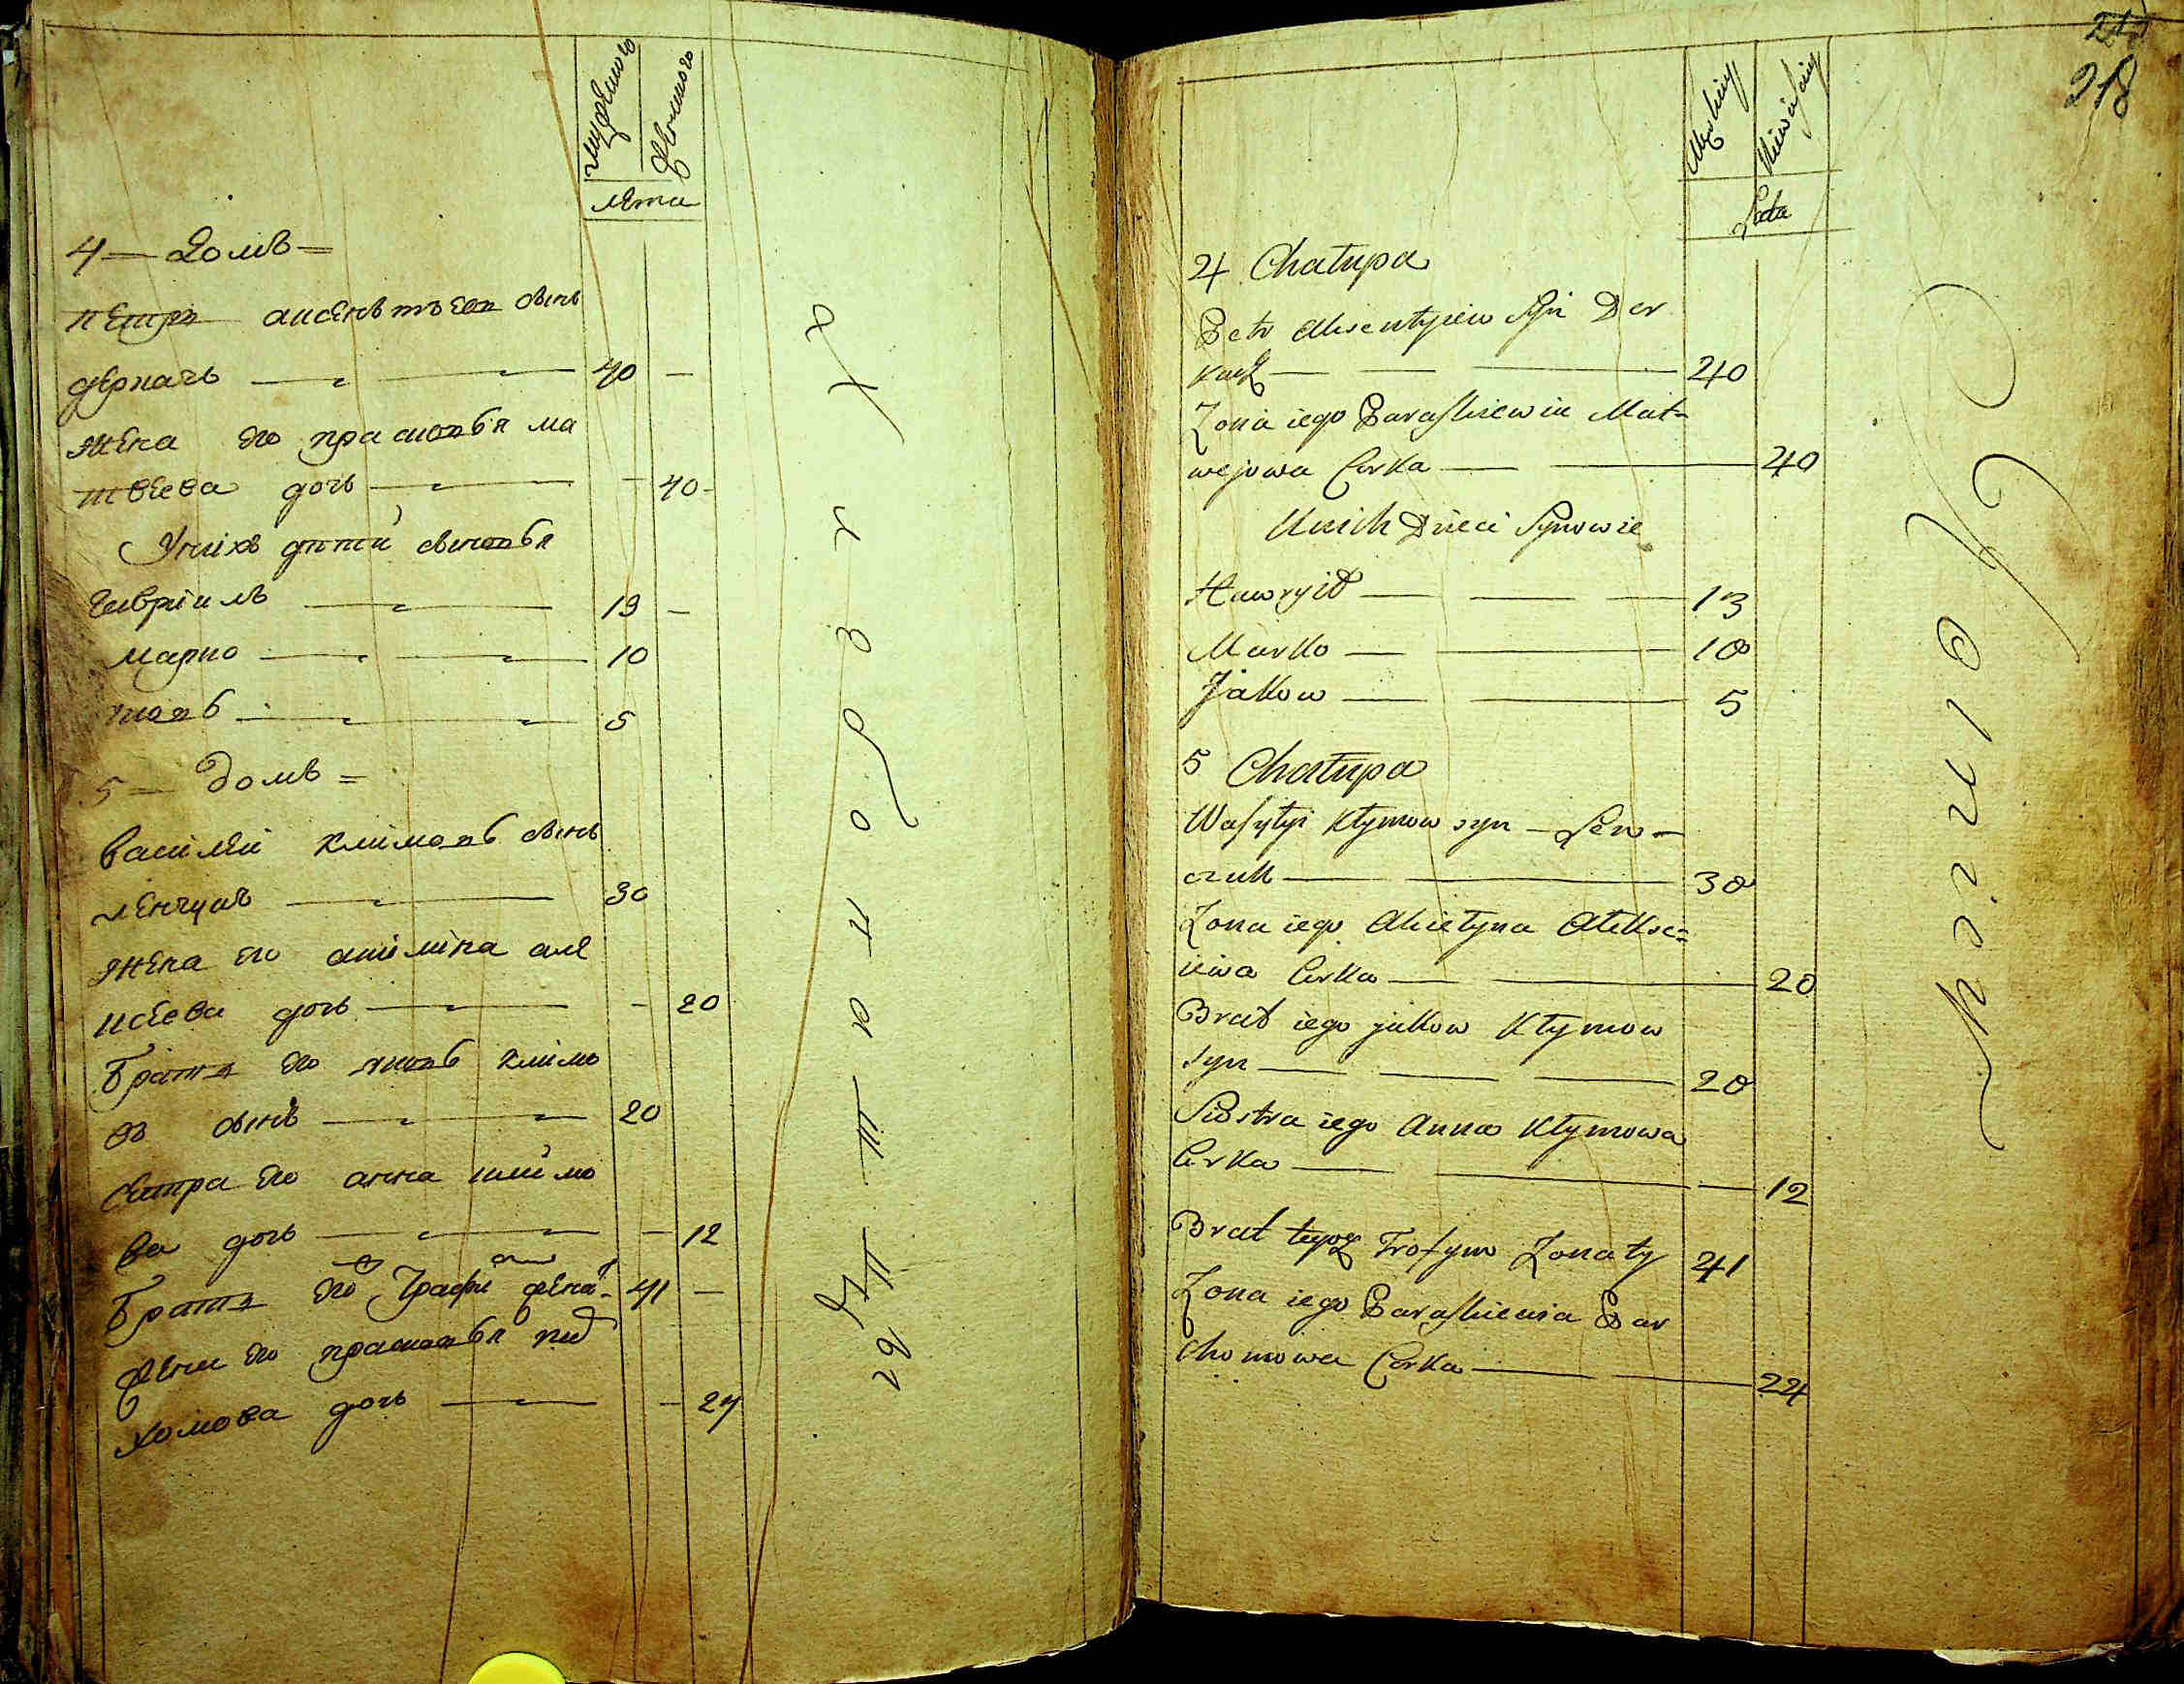 мужеского
женского
лѣта
4 — Домъ =
петръ аксентъевъ сынъ
деркачъ — — 40 —
жена его прасковья ма
твеева дочь — — 40
Унихъ дѣти сыновья
гавріилъ — 13 —
марко — — 10
яковъ — — 5
5 — домъ =
василей климовъ сынъ
ленчукъ — 30
жена его акилина але
ксеева дочь — — 20
братъ его яковъ климо
въ сынъ — 20
сестра его анна климо
ва дочь — — 12
братъ его Трофи жена — 41 —
жена его прасковья пар
хомова дочь — — 24
218
Męskiey
Niewiesciey
Lata
4 Chałupa
Petr Aksentyiew syn Der
kacz — — — 40
Zona iego Paraskiewia Mat=
wejowa Corka — — 40
Unich Dzieci Synowie
Hawryił — — — 13
Marko — — 10
Jakow — — 5
5 Chałupa
Wasylyi Klymow syn — Len=
czuk — — 30
Zona iego Akietyna Alekse=
iewa Corka — — 20
Brat iego jakow Klymow
syn — — — 20
Siostra iego Anna Klymowa
Corka — — — 12
Brat tegoz Trofym Zonaty 41
Zona iego Paraskiewia Par
chomowa Corka — — 24